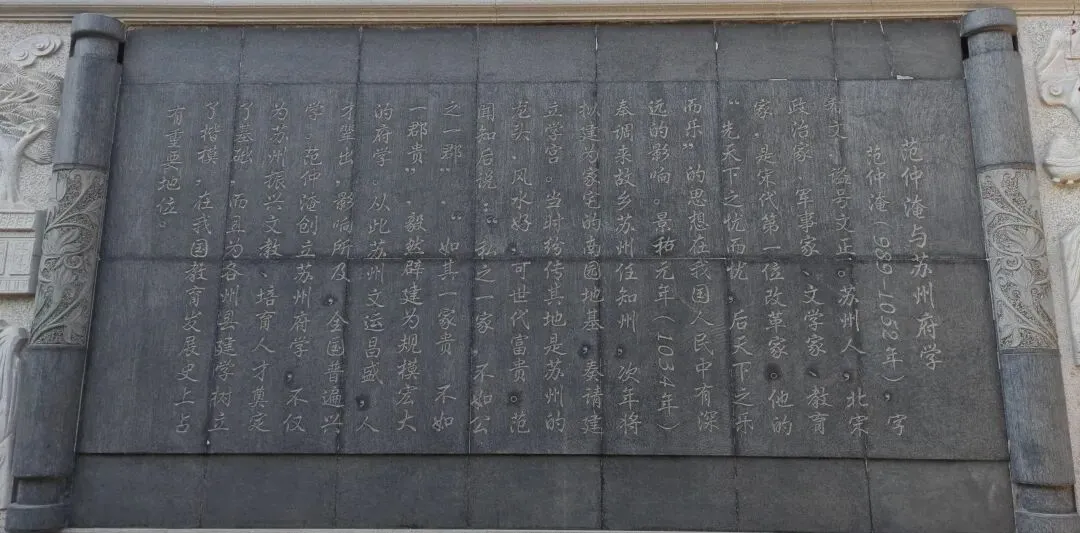 范仲淹与苏州府学
范仲淹(989-1052年),字
希文,谥号文正。苏州人,北宋
政治家、军事家、文学家、教育
家,是宋代第一位改革家。他的
“先天下之忧而忧,后天下之乐
而乐”的思想在我国人民中有深
远的影响。景祐元年(1034年)
奉调来故乡苏州任知州,次年将
拟建为家宅的南园地基,奏请建
立学宫。当时纷传其地是苏州的
龙头,风水好,可世代富贵。范
闻知后说:“私之一家,不如公
之一郡”,“如其一家贵,不如
一郡贵”,毅然辟建为规模宏大
的府学。从此苏州文运昌盛,人
才辈出,影响所及,全国普遍兴
学,范仲淹创立苏州府学,不仅
为苏州振兴文教、培育人才奠定
了基础,而且为各州县建学树立
了楷模,在我国教育发展史上占
有重要地位。